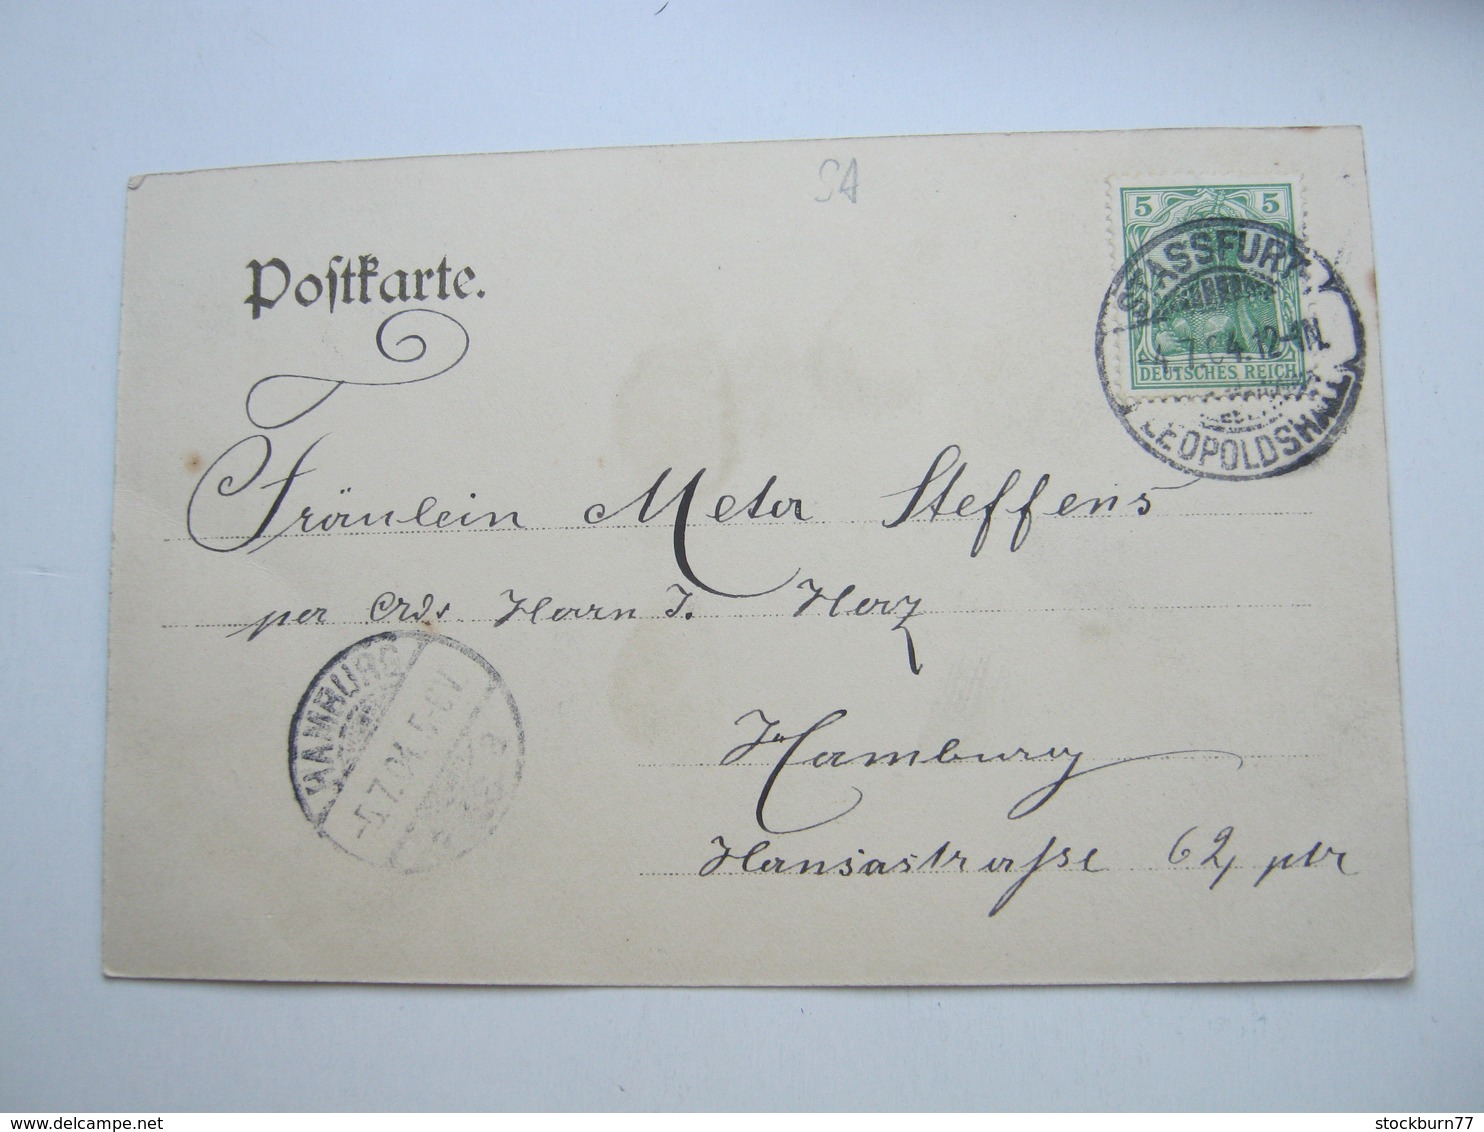 SA
Postkarte.
5 5
DEUTSCHES REICH
STASSFURT-
4.7.04.12-1N.
LEOPOLDSHALL
Fräulein Meta Steffens
per Adr. Herrn J. Herz
Hamburg
Hansastraße 62, ptr
HAMBURG
-5.7.04.5-6V
stockburn77